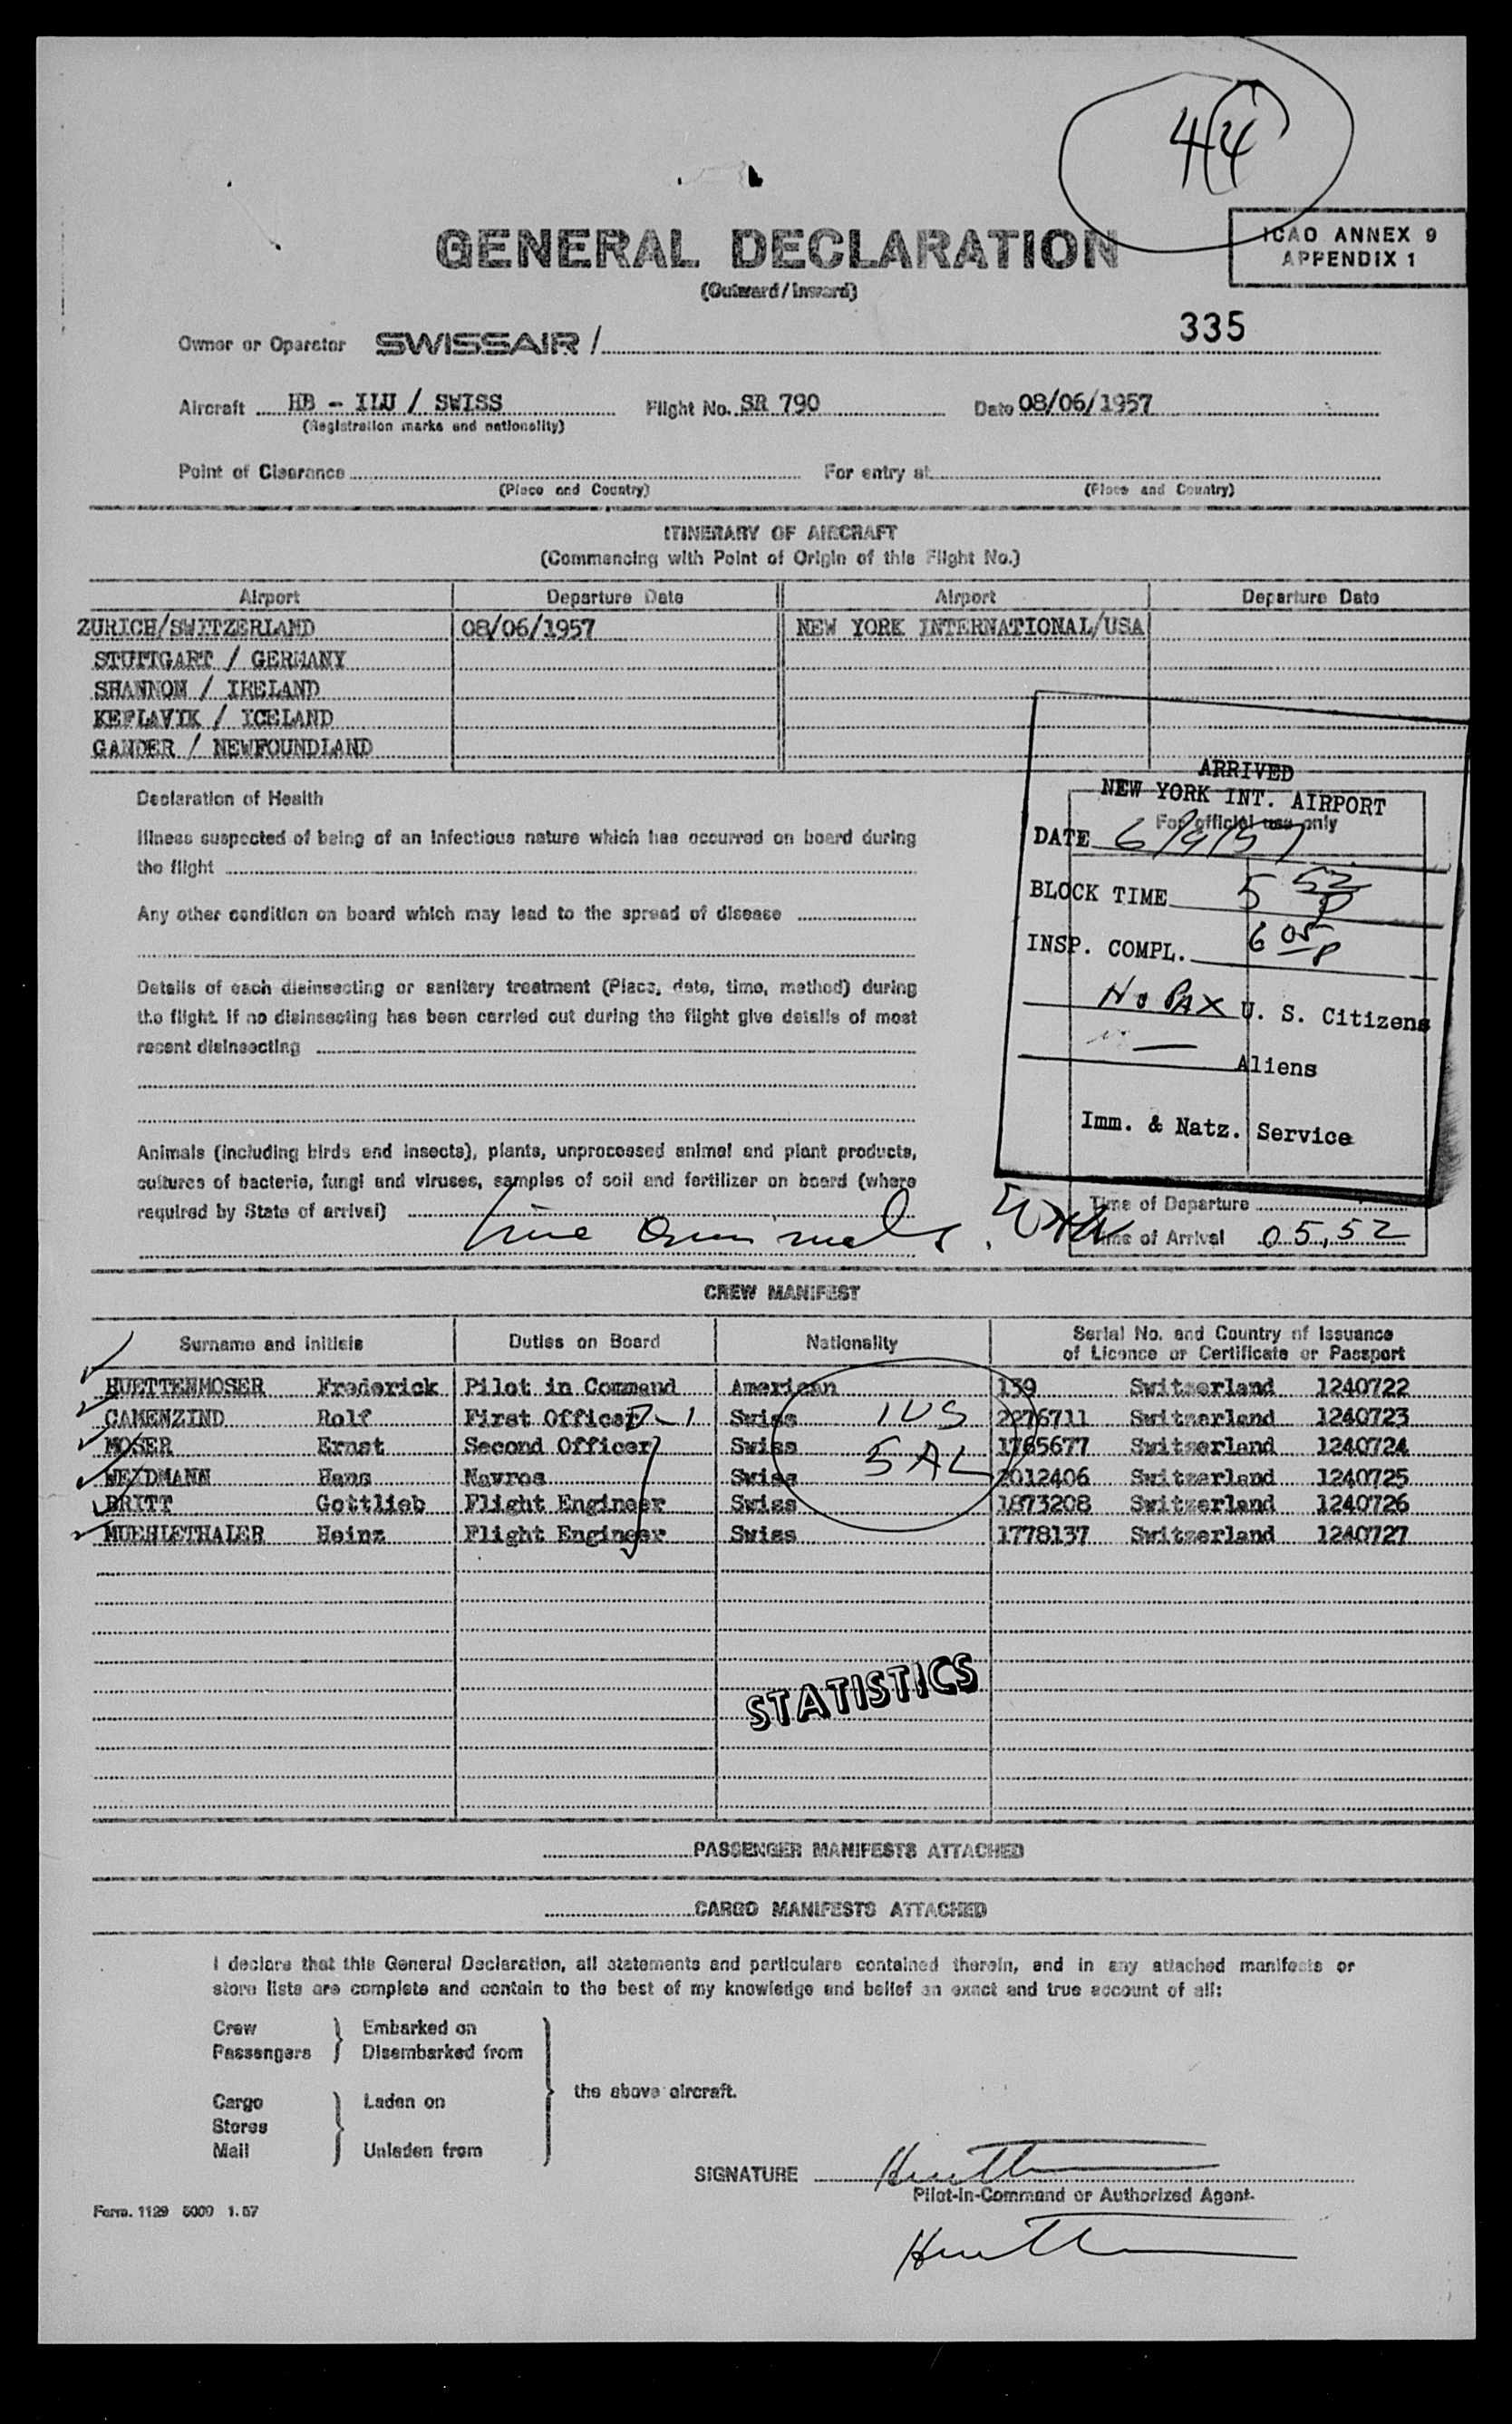 44
GENERAL DECLARATION
(Outward/Inward)
ICAO ANNEX 9
APPENDIX 1
Owner or Operator SWISSAIR /
335
Aircraft HB - ILU / SWISS Flight No. SR 790 Date 08/06/1957
(Registration marks and nationality)
Point of Clearance For entry at
(Place and Country) (Place and Country)
ITINERARY OF AIRCRAFT
(Commencing with Point of Origin of this Flight No.)
Airport Departure Date Airport Departure Date
ZURICH/SWITZERLAND 08/06/1957 NEW YORK INTERNATIONAL/USA
STUTTGART / GERMANY
SHANNON / IRELAND
KEFLAVIK / ICELAND
GANDER / NEWFOUNDLAND
Declaration of Health
Illness suspected of being of an infectious nature which has occurred on board during
the flight
Any other condition on board which may lead to the spread of disease
Details of each disinsecting or sanitary treatment (Place, date, time, method) during
the flight. If no disinsecting has been carried out during the flight give details of most
recent disinsecting
Animals (including birds and insects), plants, unprocessed animal and plant products,
cultures of bacteria, fungi and viruses, samples of soil and fertilizer on board (where
required by State of arrival)
live animals.
ARRIVED
NEW YORK INT. AIRPORT
For official use only
DATE 6/9/57
BLOCK TIME 5 52 P
INSP. COMPL. 6 05 P
No PAX U. S. Citizens
— Aliens
Imm. & Natz. Service
Time of Departure
Time of Arrival 05,52
CREW MANIFEST
Surname and initials Duties on Board Nationality Serial No. and Country of Issuance
of Licence or Certificate or Passport
HUETTENMOSER Frederick Pilot in Command American 139 Switzerland 1240722
CAMENZIND Rolf First Officer Swiss 2276711 Switzerland 1240723
MOSER Ernst Second Officer Swiss 1765677 Switzerland 1240724
WEIDMANN Hans Navros Swiss 2012406 Switzerland 1240725
BRITT Gottlieb Flight Engineer Swiss 1873208 Switzerland 1240726
MUEHLETHALER Heinz Flight Engineer Swiss 1778137 Switzerland 1240727
1 US
5 AL
STATISTICS
PASSENGER MANIFESTS ATTACHED
CARGO MANIFESTS ATTACHED
I declare that this General Declaration, all statements and particulars contained therein, and in any attached manifests or
store lists are complete and contain to the best of my knowledge and belief an exact and true account of all:
Crew Embarked on
Passengers Disembarked from
the above aircraft.
Cargo Laden on
Stores
Mail Unladen from
SIGNATURE
Pilot-in-Command or Authorized Agent.
Form. 1129 5000 1.57